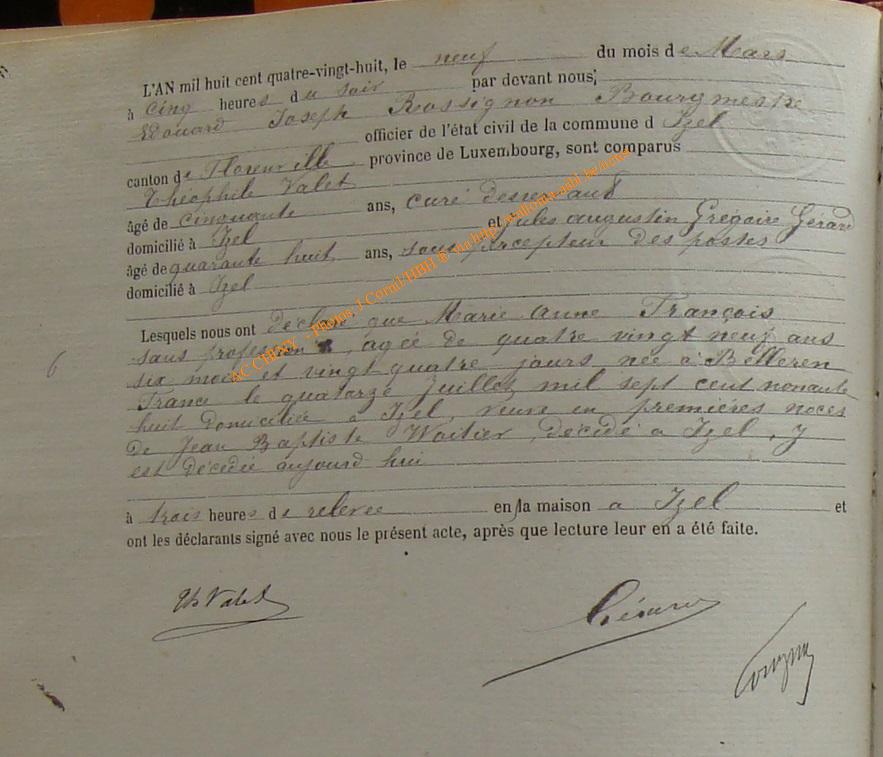 L'AN mil huit cent quatre-vingt-huit, le neuf du mois de Mars
à Cinq heures du soir par devant nous;
Edouard Joseph Rossignon Bourgmestre
officier de l'état civil de la commune d Izel
canton de Florenville province de Luxembourg, sont comparus
Théophile Valet
âgé de cinquante ans, curé desservant
domicilié à Izel et Jules augustin Grégoire Gérard
âgé de quarante huit ans, sous percepteur des postes
domicilié à Izel
Lesquels nous ont déclaré que Marie Anne François
sans profession, agée de quatre vingt neuf ans
six mois et vingt quatre jours, née à
France le quatorze Juillet mil sept cent nonante
6
huit domiciliée a Izel, veuve en premières noces
de Jean Baptiste Woitier, décidé a Izel, y
est décédée aujourd hui
à trois heures de relevée en la maison a Izel et
ont les déclarants signé avec nous le présent acte, après que lecture leur en a été faite.
Th Valet
Gérard
ACCHINY - Photos J.Cornil HBH ® via